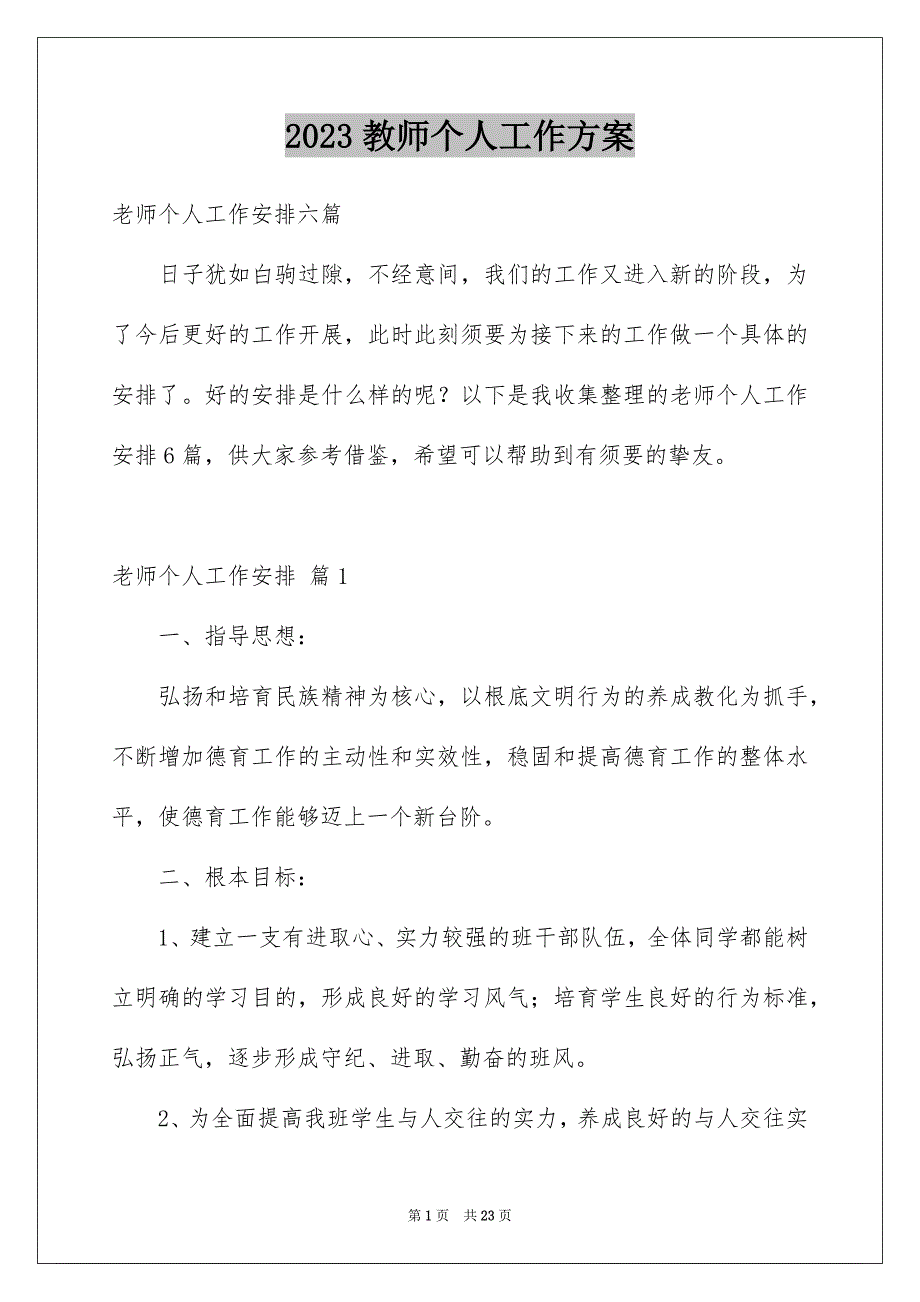 2023教师个人工作方案
老师个人工作安排六篇
日子犹如白驹过隙，不经意间，我们的工作又进入新的阶段，为
了今后更好的工作开展，此时此刻须要为接下来的工作做一个具体的
安排了。好的安排是什么样的呢？以下是我收集整理的老师个人工作
安排6篇，供大家参考借鉴，希望可以帮助到有须要的挚友。
老师个人工作安排 篇1
一、指导思想：
弘扬和培育民族精神为核心，以根底文明行为的养成教化为抓手，
不断增加德育工作的主动性和实效性，稳固和提高德育工作的整体水
平，使德育工作能够迈上一个新台阶。
二、根本目标：
1、建立一支有进取心、实力较强的班干部队伍，全体同学都能树
立明确的学习目的，形成良好的学习风气；培育学生良好的行为标准，
弘扬正气，逐步形成守纪、进取、勤奋的班风。
2、为全面提高我班学生与人交往的实力，养成良好的与人交往实
第1页 共23页